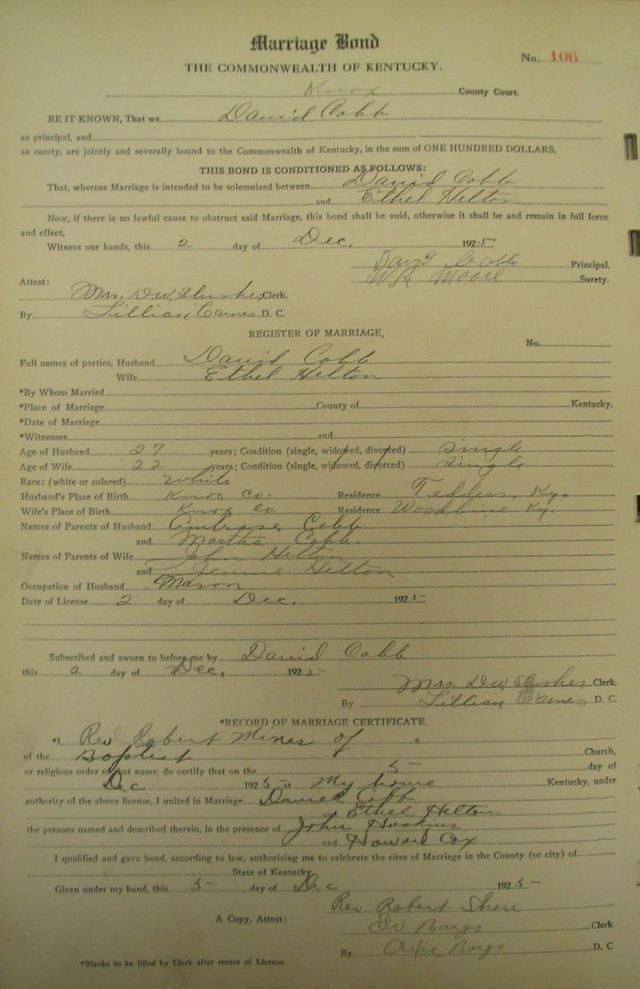 Marriage Bond
No. 106
THE COMMONWEALTH OF KENTUCKY.
Knox County Court.
BE IT KNOWN, That we David Cobb
as principal, and
as surety, are jointly and severally bound to the Commonwealth of Kentucky, in the sum of ONE HUNDRED DOLLARS.
THIS BOND IS CONDITIONED AS FOLLOWS:
That, whereas Marriage is intended to be solemnized between David Cobb
and Ethel Helton
Now, if there is no lawful cause to obstruct said Marriage, this bond shall be void, otherwise it shall be and remain in full force
and effect,
Witness our hands, this 2 day of Dec. 1925
David Cobb Principal.
W.R. Moore Surety.
Attest:
Mrs. D.W. Slusher Clerk.
By Lillian Carnes D. C.
REGISTER OF MARRIAGE,
No.
Full names of parties, Husband David Cobb
Wife Ethel Helton
*By Whom Married
*Place of Marriage County of Kentucky.
*Date of Marriage
*Witnesses and
Age of Husband 27 years; Condition (single, widowed, divorced) single
Age of Wife 22 years; Condition (single, widowed, divorced) single
Race: (white or colored) White
Husband's Place of Birth Knox Co. Residence Tedders, Ky.
Wife's Place of Birth Knox Co Residence Woodbine Ky.
Names of Parents of Husband Ambrose Cobb
and Martha Cobb.
Names of Parents of Wife John Helton
and Jennie Helton
Occupation of Husband Mason
Date of License 2 day of Dec. 1925
Subscribed and sworn to before me by David Cobb
this 2 day of Dec. 1925
Mrs. D.W. Slusher Clerk.
By Lillian Carnes D. C.
*RECORD OF MARRIAGE CERTIFICATE.
*I, Rev Robert Mines of
of the Baptist Church,
or religious order of that name, do certify that on the 5 day of
Dec 1925 at My home Kentucky, under
authority of the above license, I united in Marriage David Cobb
and Ethel Helton
the persons named and described therein, in the presence of John
and Howard Cox
I qualified and gave bond, according to law, authorizing me to celebrate the rites of Marriage in the County (or city) of
State of Kentucky
Given under my hand, this 5 day of Dec 1925
Rev Robert
A Copy, Attest: Clerk
By D. C
*Blanks to be filled by Clerk after return of License.